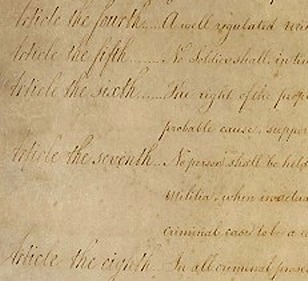 Article the fourth..... A well regulated
Article the fifth....... No Soldier shall, in
Article the sixth...... The right of the
probable cause, suppor
Article the seventh.. No person shall be held
Militia, when in actua
criminal case to be a
Article the eighth.. In all criminal prose